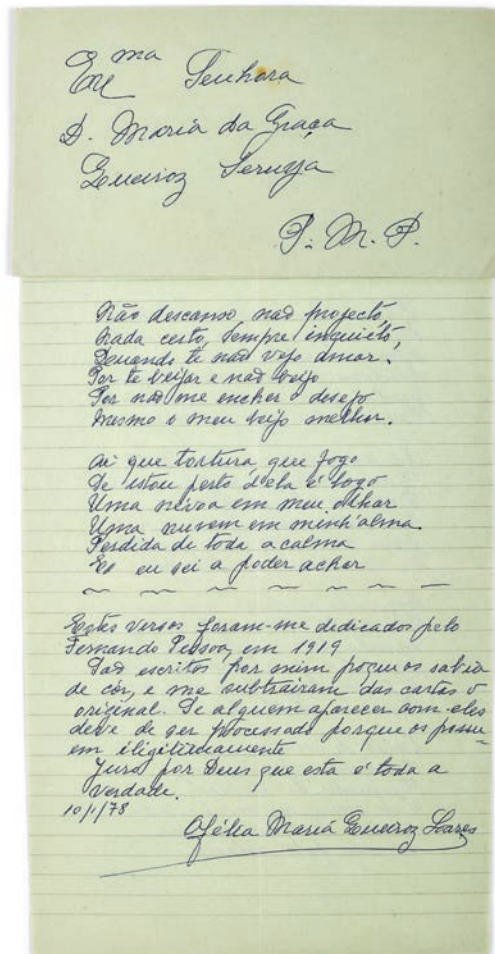 Exma Senhora
D. Maria da Graça
Queiroz
P. M. P.
Não descanso, não projecto,
Nada certo, sempre inquieto,
Quando te não vejo amor.
Por te beijar e não beijo
Por não me encher o desejo
Mesmo o meu beijo melhor.
Ai que tortura, que fogo
Se estou perto d'ela é logo
Uma nevoa em meu olhar
Uma nuvem em minh'alma.
Perdida de toda a calma
E eu sei a poder achar
Estes versos foram-me dedicados pelo
Fernando Pessoa, em 1919
São escritos por mim porque os sabia
de cór, e me subtrairam das cartas o
original. Se alguem aparecer com eles
deve de ser processado porque os possu-
em
Juro por Deus que esta é toda a
verdade.
10/1/78
Ofélia Maria Queiroz Soares